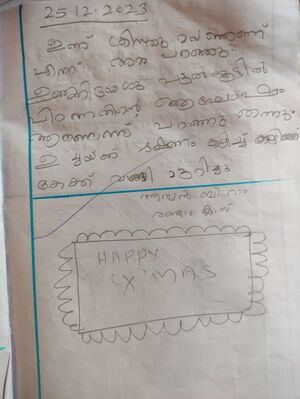 25.12.2023
ഇന്ന് ക്രിസ്തുമസ് ആണ്
എന്ന് അമ്മ പറഞ്ഞു.
ഉണ്ണിയേശു പുൽക്കൂട്ടിൽ
പിറന്നതിന്റെ ആഘോഷം
ആണെന്ന് പറഞ്ഞു തന്നു.
ഉച്ചയ്ക്ക് ഭക്ഷണം കഴിച്ച്
കേക്ക് വാങ്ങി മുറിച്ചു
രണ്ടാം ക്ലാസ്
HAPPY
'X' MAS